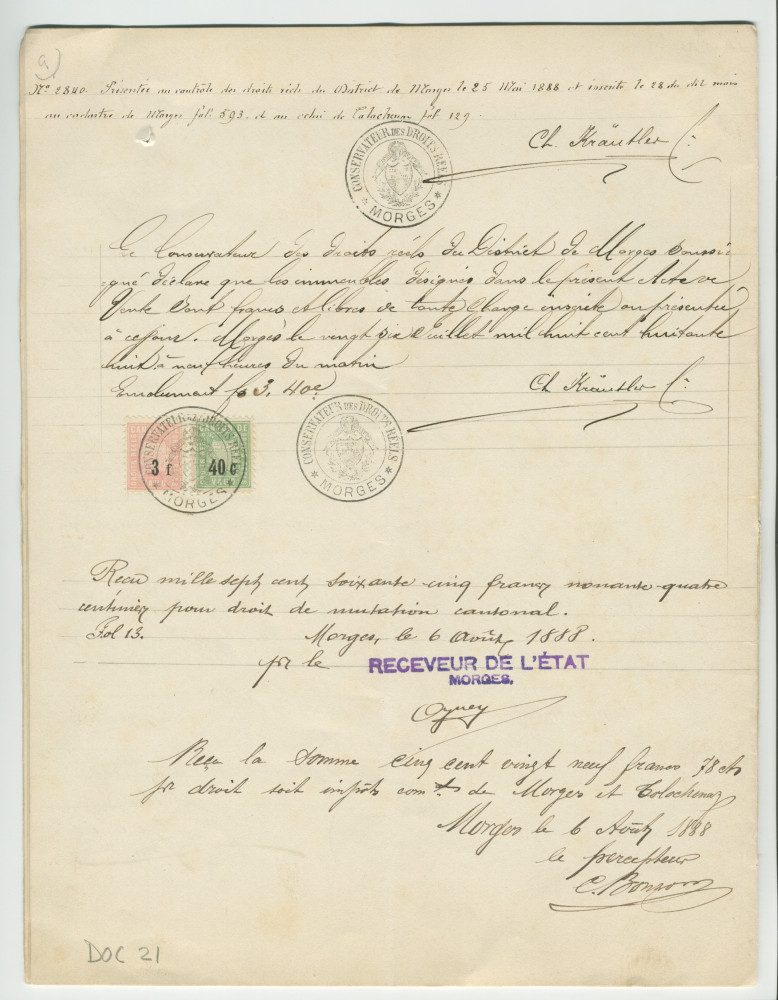 a)
No. 2840. Présentée au contrôle des droits réels du District de Morges le 25 Mai 1888 et inscrite le 28 du dit mois
au cadastre de Morges fol. 593. et au celui de Tolochenaz fol 129.
Ch. Kräutler Cr
CONSERVATEUR DES DROITS RÉELS
* MORGES *
Le Conservateur des droits réels du District de Morges soussi-
gné déclare que les immeubles désignés dans le présent Acte de
Vente sont francs et libres de toute charge inscrite ou présentée
à ce jour. Morges le vingt six Juillet mil huit cent huitante
huit à neuf heures du matin
Emolument fr 3. 40c
Ch Kräutler Cr
CONSERVATEUR DES DROITS RÉELS
* MORGES *
3 f 40 c
CONSERVATEUR DES DROITS RÉELS
* MORGES *
Recu mille sept cent soixante-cinq francs nonante-quatre
centimes pour droit de mutation cantonal.
Fol 13. Morges, le 6 Août 1888.
pr le RECEVEUR DE L'ÉTAT
MORGES.
Reçu la somme cinq cent vingt neuf francs 78 cts
pr droit soit impôts comx de Morges et Tolochenaz
Morges le 6 Août 1888
le percepteur
DOC 21